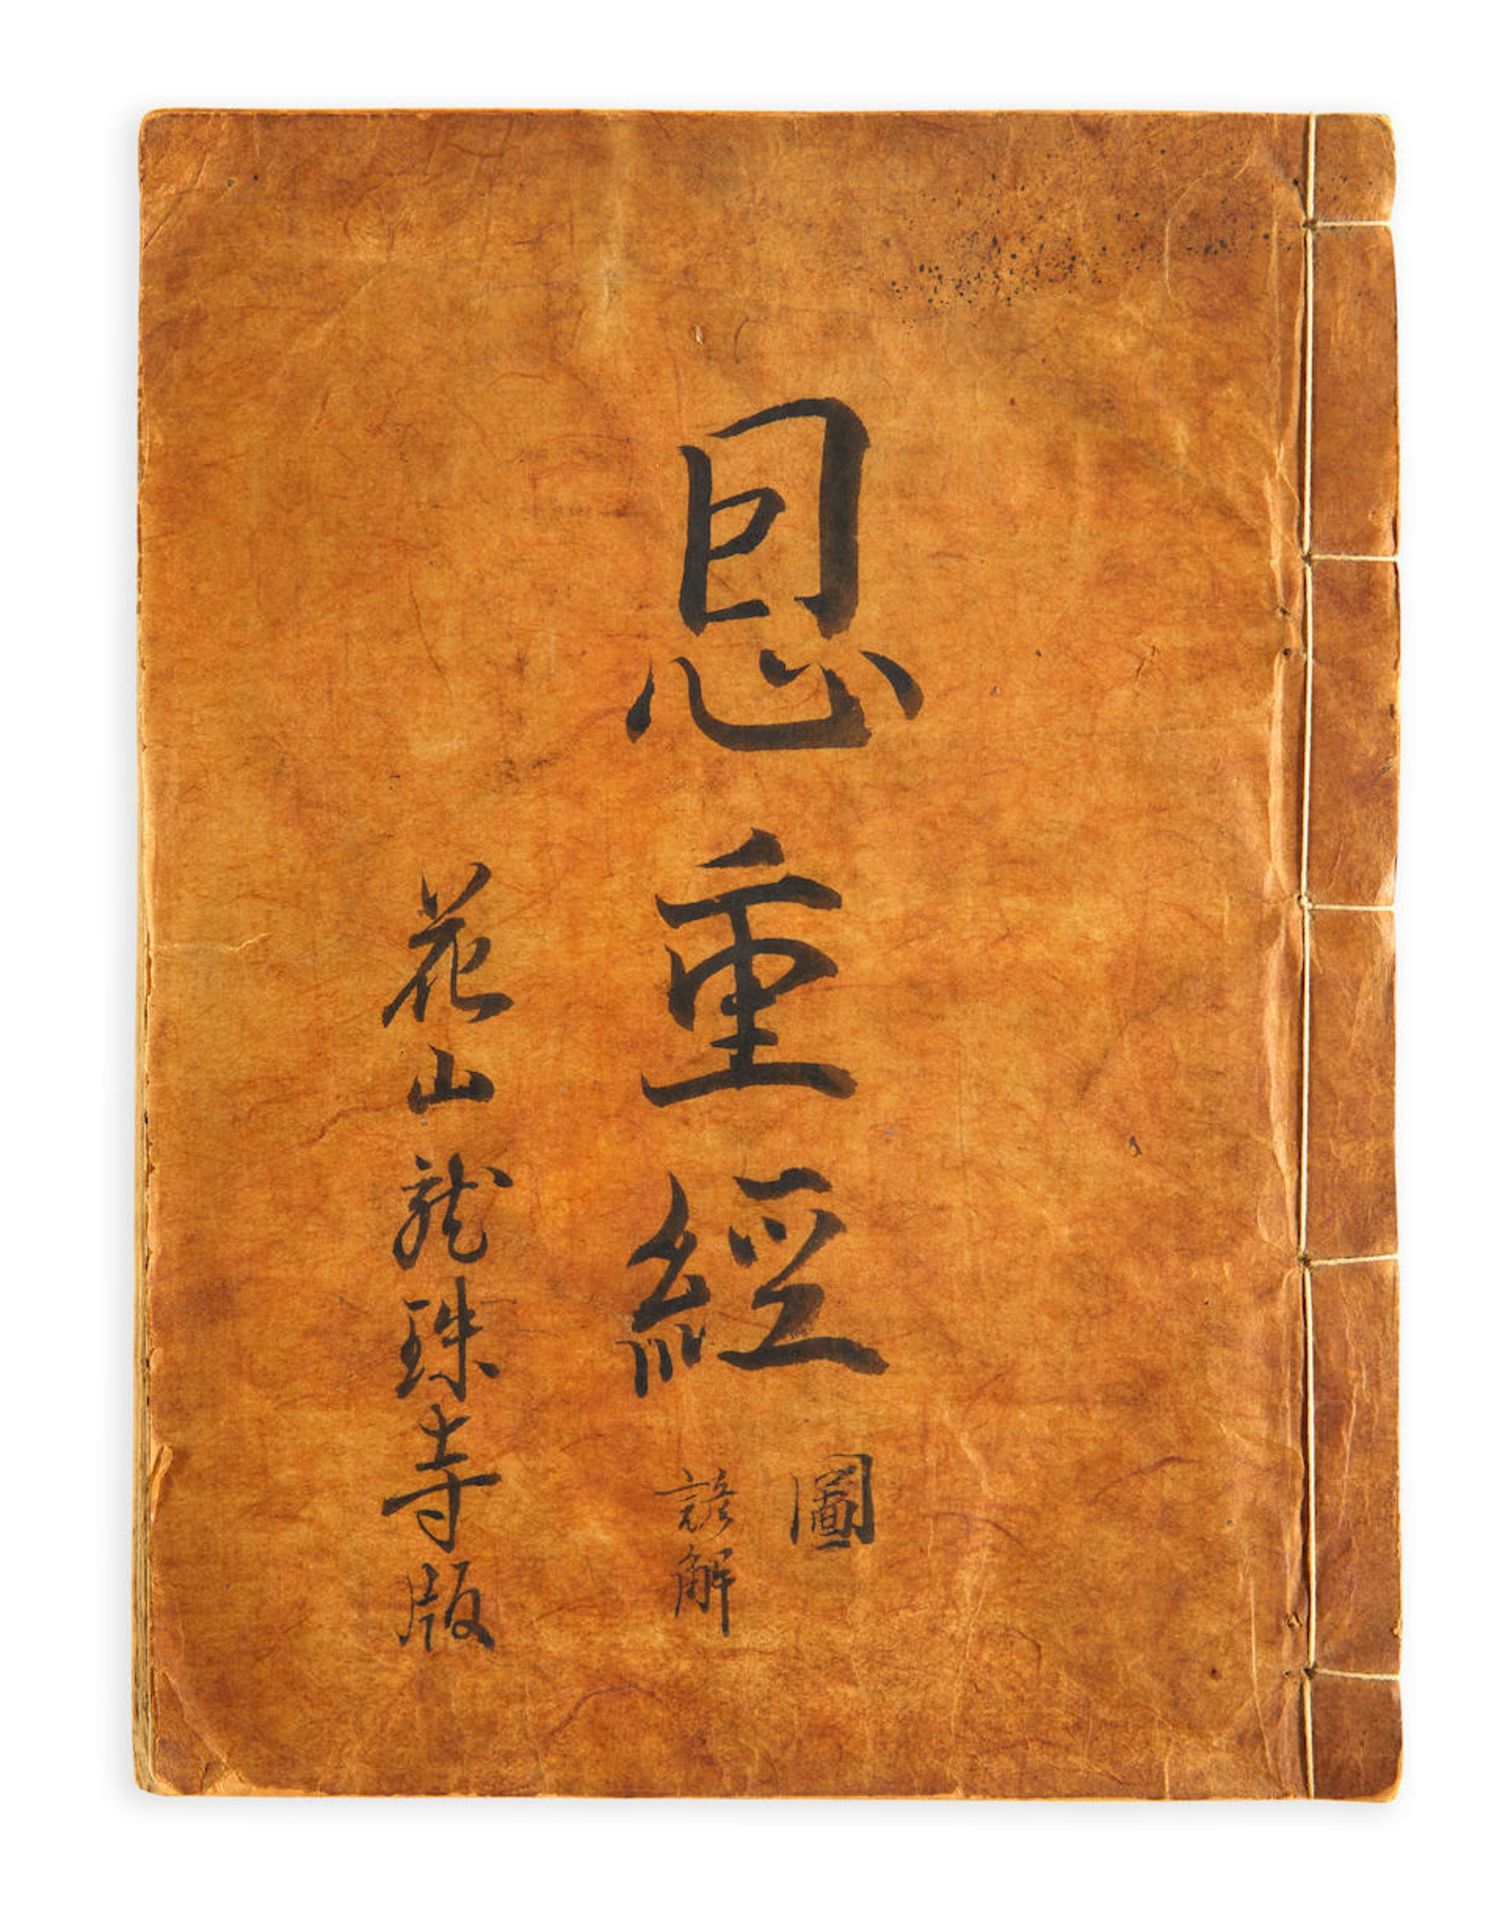 恩重經
圖
諺解
花山龍珠寺版